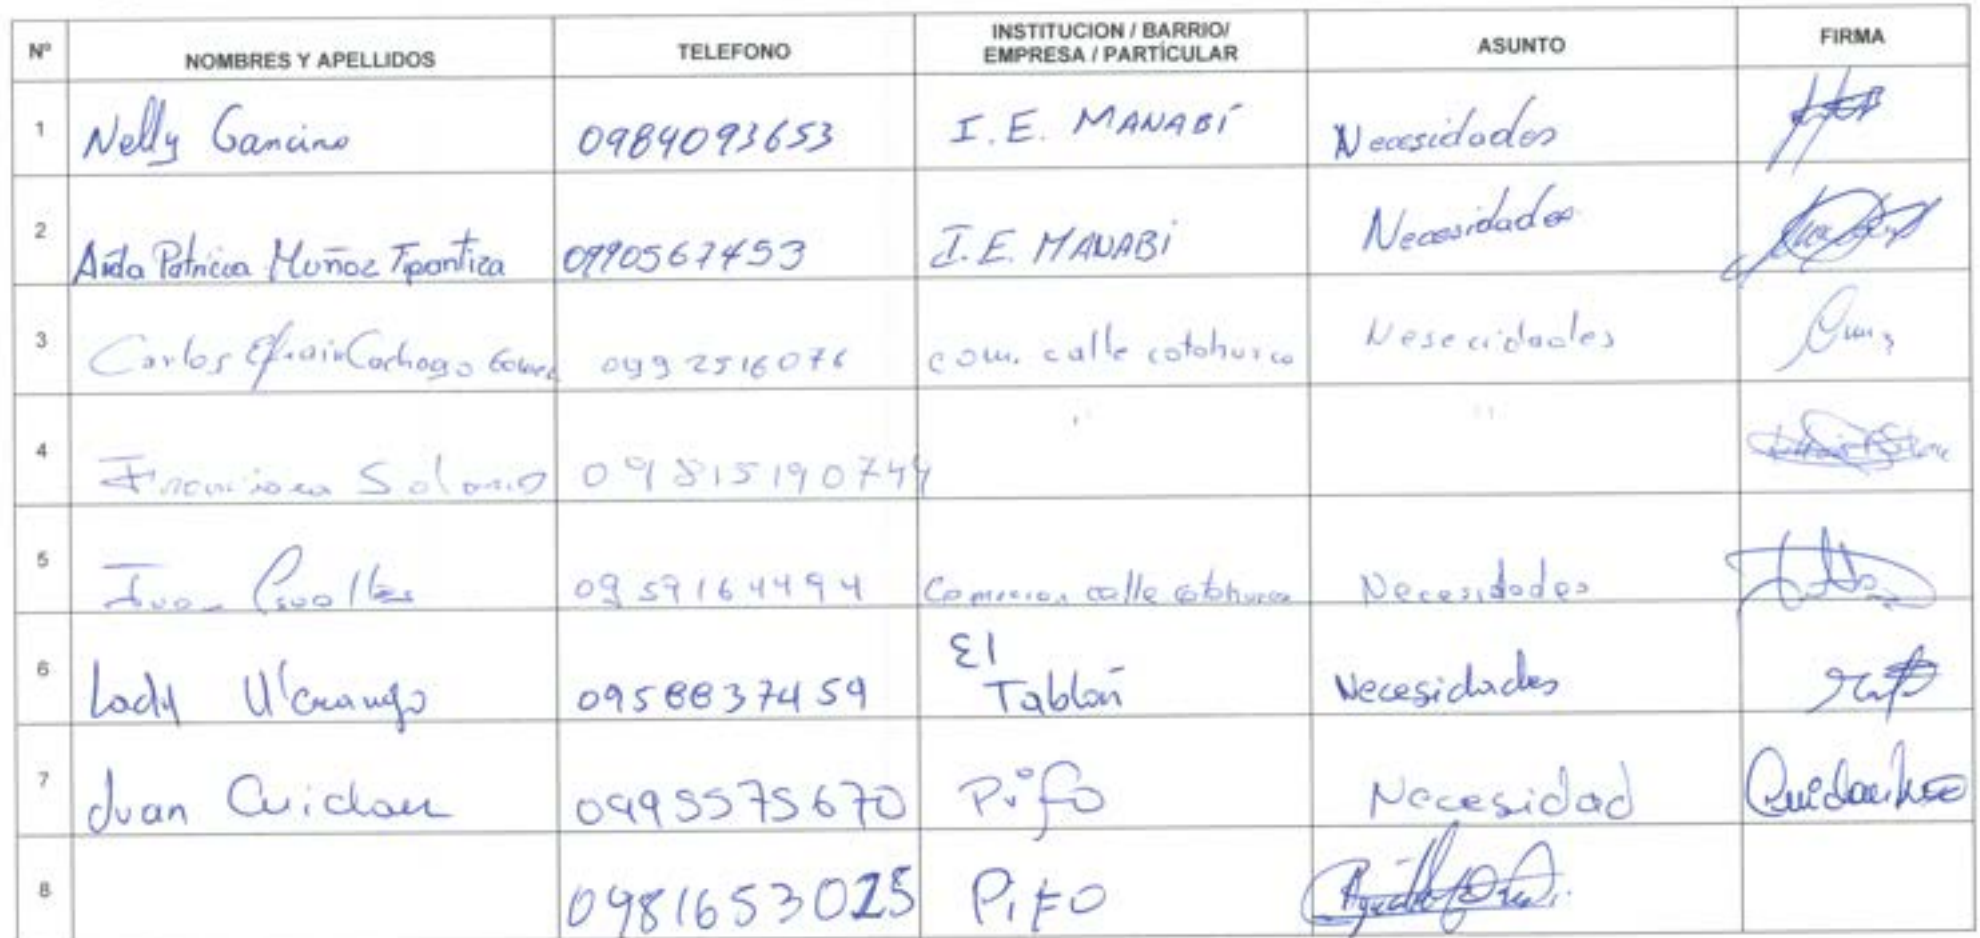 Nº NOMBRES Y APELLIDOS TELEFONO INSTITUCION / BARRIO/ EMPRESA / PARTÍCULAR ASUNTO FIRMA
1 Nelly Gancino 0984093653 I.E. MANABÍ Necesidades
2 Aida Patricia Muñoz Tipantiza 0990567453 I.E. MANABÍ Necesidades
3 Carlos Efrain Cachago Gomez 0992516076 com. calle cotohurco Nesecidades
4 Francisca Solano 09815190744
5 0959164494 calle cotohurco Necesidades
6 0958837459 El Tablón Necesidades
7 Juan 0995575670 Pifo Necesidad
8 0981653025 PiFO